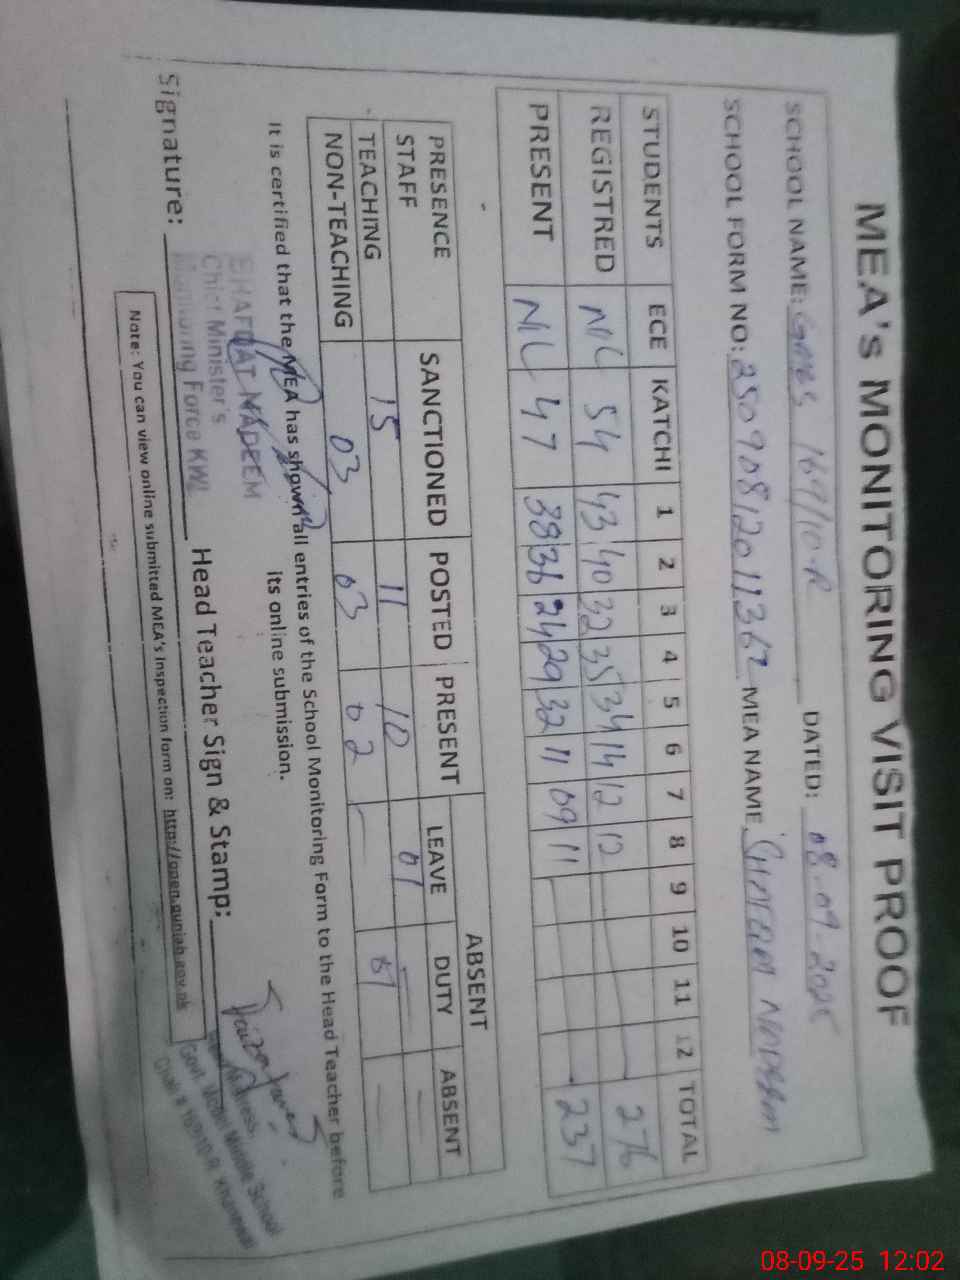 MEA's MONITORING VISIT PROOF
SCHOOL NAME: 169/10-R DATED: 08-09-2025
SCHOOL FORM NO: MEA NAME
STUDENTS ECE KATCHI 1 2 3 4 5 6 7 8 9 10 11 12 TOTAL
REGISTRED NIL 54 43 40 32 35 34 14 12 12 276
PRESENT NIL 47 38 36 24 29 32 11 09 11 237
PRESENCE SANCTIONED POSTED PRESENT ABSENT
STAFF LEAVE DUTY ABSENT
TEACHING 15 11 10 01 — —
NON-TEACHING 03 03 02 — 01 —
It is certified that the MEA has shown all entries of the School Monitoring Form to the Head Teacher before
its online submission.
NADEEM
Chief Minister's
Monitoring Force KWL
Signature: Head Teacher Sign & Stamp:
Headmistress,
Govt. Model Middle School
Chak # 169/10-R Khanewal
Note: You can view online submitted MEA's Inspection form on: http://open.punjab.gov.pk
08-09-25 12:02